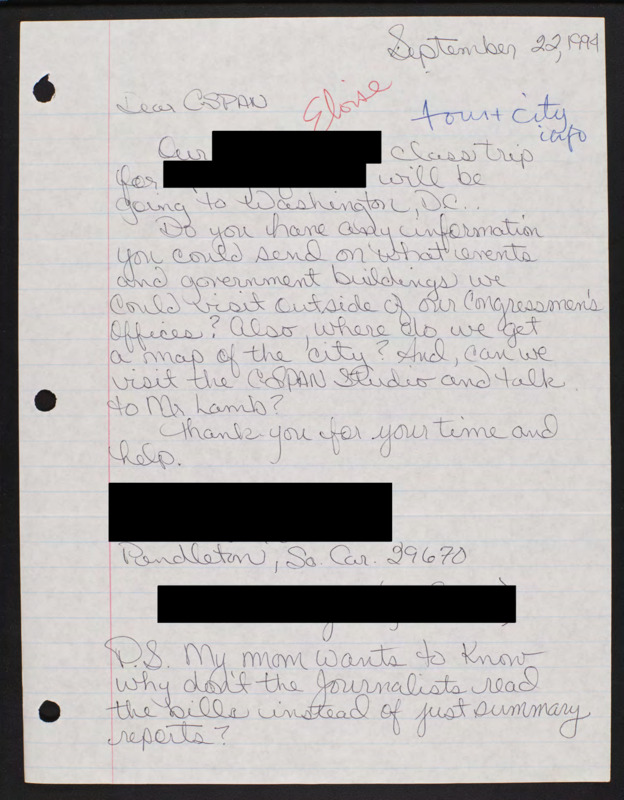 September 22, 1994
Dear CSPAN
Eloise
tour + city
info
Our class trip
for will be
going to Washington, DC..
Do you have any information
you could send on what events
and government buildings we
could visit outside of our Congressmen's
Offices? Also, where do we get
a map of the city? And, can we
visit the CSPAN Studio and talk
to Mr Lamb?
Thank you for your time and
help.
Pendleton, So. Car. 29670
P.S. My mom wants to know
why don't the Journalists read
the bills instead of just summary
reports?